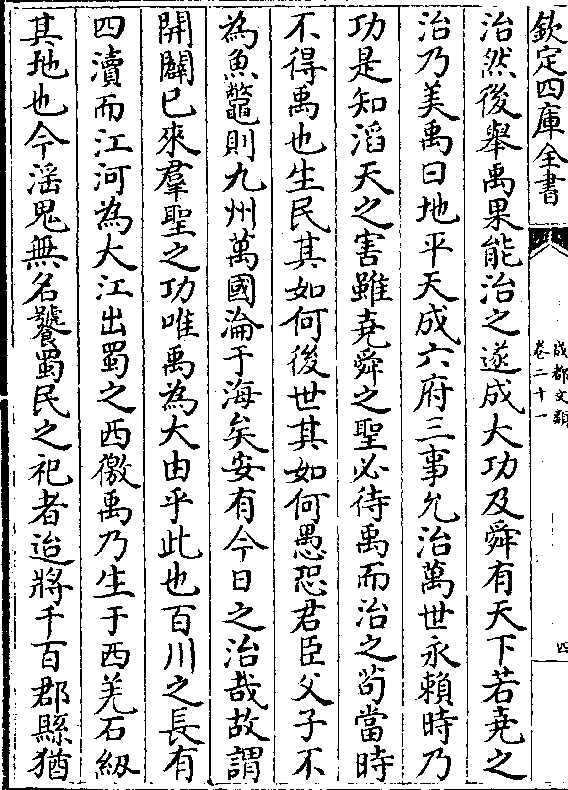 欽定四庫全書
成都文類
卷二十一
四
治然後舉禹果能治之遂成大功及舜有天下若堯之
治乃美禹曰地平天成六府三事允治萬世永賴時乃
功是知滔天之害雖堯舜之聖必待禹而治之茍當時
不得禹也生民其如何後世其如何愚恐君臣父子不
為魚鼈則九州萬國淪于海矣安有今日之治哉故謂
開闢已來羣聖之功唯禹為大由乎此也百川之長有
四瀆而江河為大江出蜀之西徼禹乃生于西羌石紐
其地也今淫鬼無名饕蜀民之祀者迨將千百郡縣猶